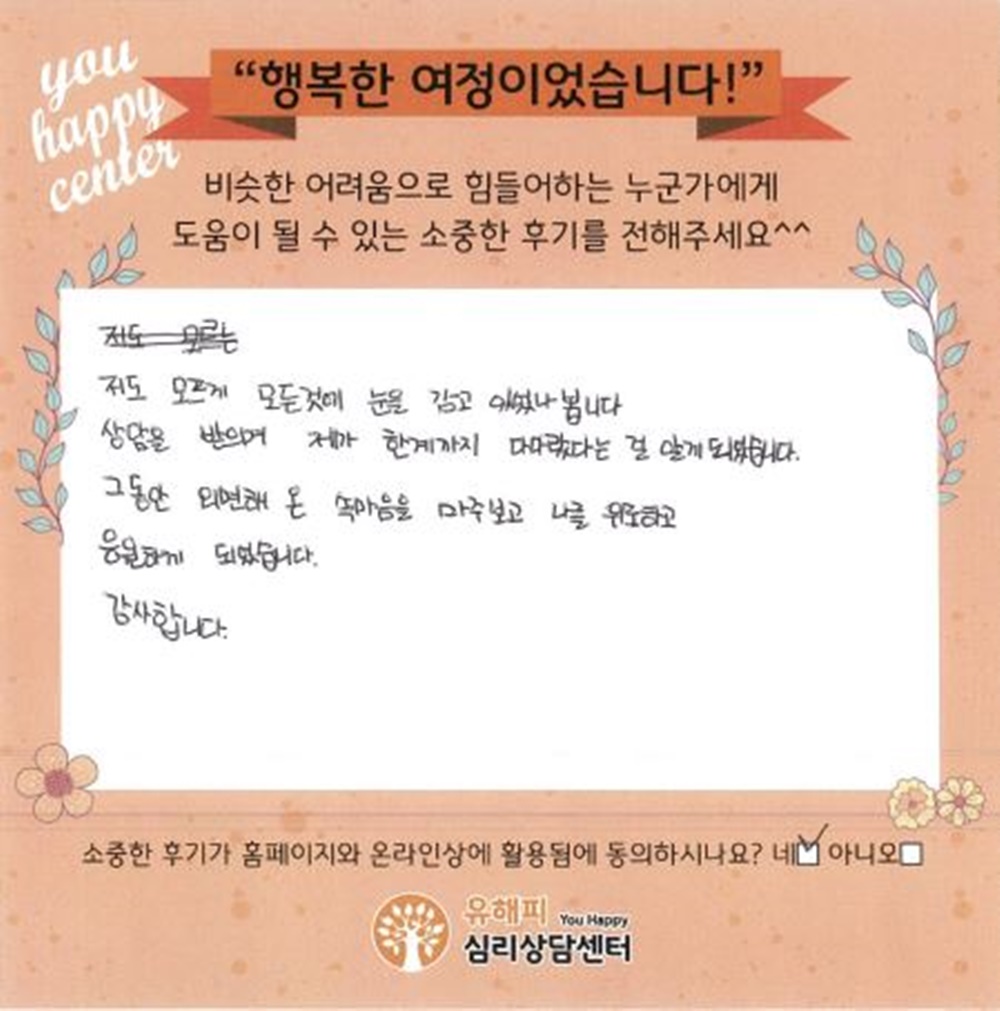 you
happy
center
“행복한 여정이었습니다!”
비슷한 어려움으로 힘들어하는 누군가에게
도움이 될 수 있는 소중한 후기를 전해주세요^^
저도 모르는
저도 모르게 모든것에 눈을 감고 있었나 봅니다
상담을 받으며 제가 한계까지 다다랐다는 걸 알게 되었습니다.
그동안 외면해 온 속마음을 마주보고 나를 위로하고
응원하게 되었습니다.
감사합니다.
소중한 후기가 홈페이지와 온라인상에 활용됨에 동의하시나요? 네 아니오
유해피 You Happy
심리상담센터